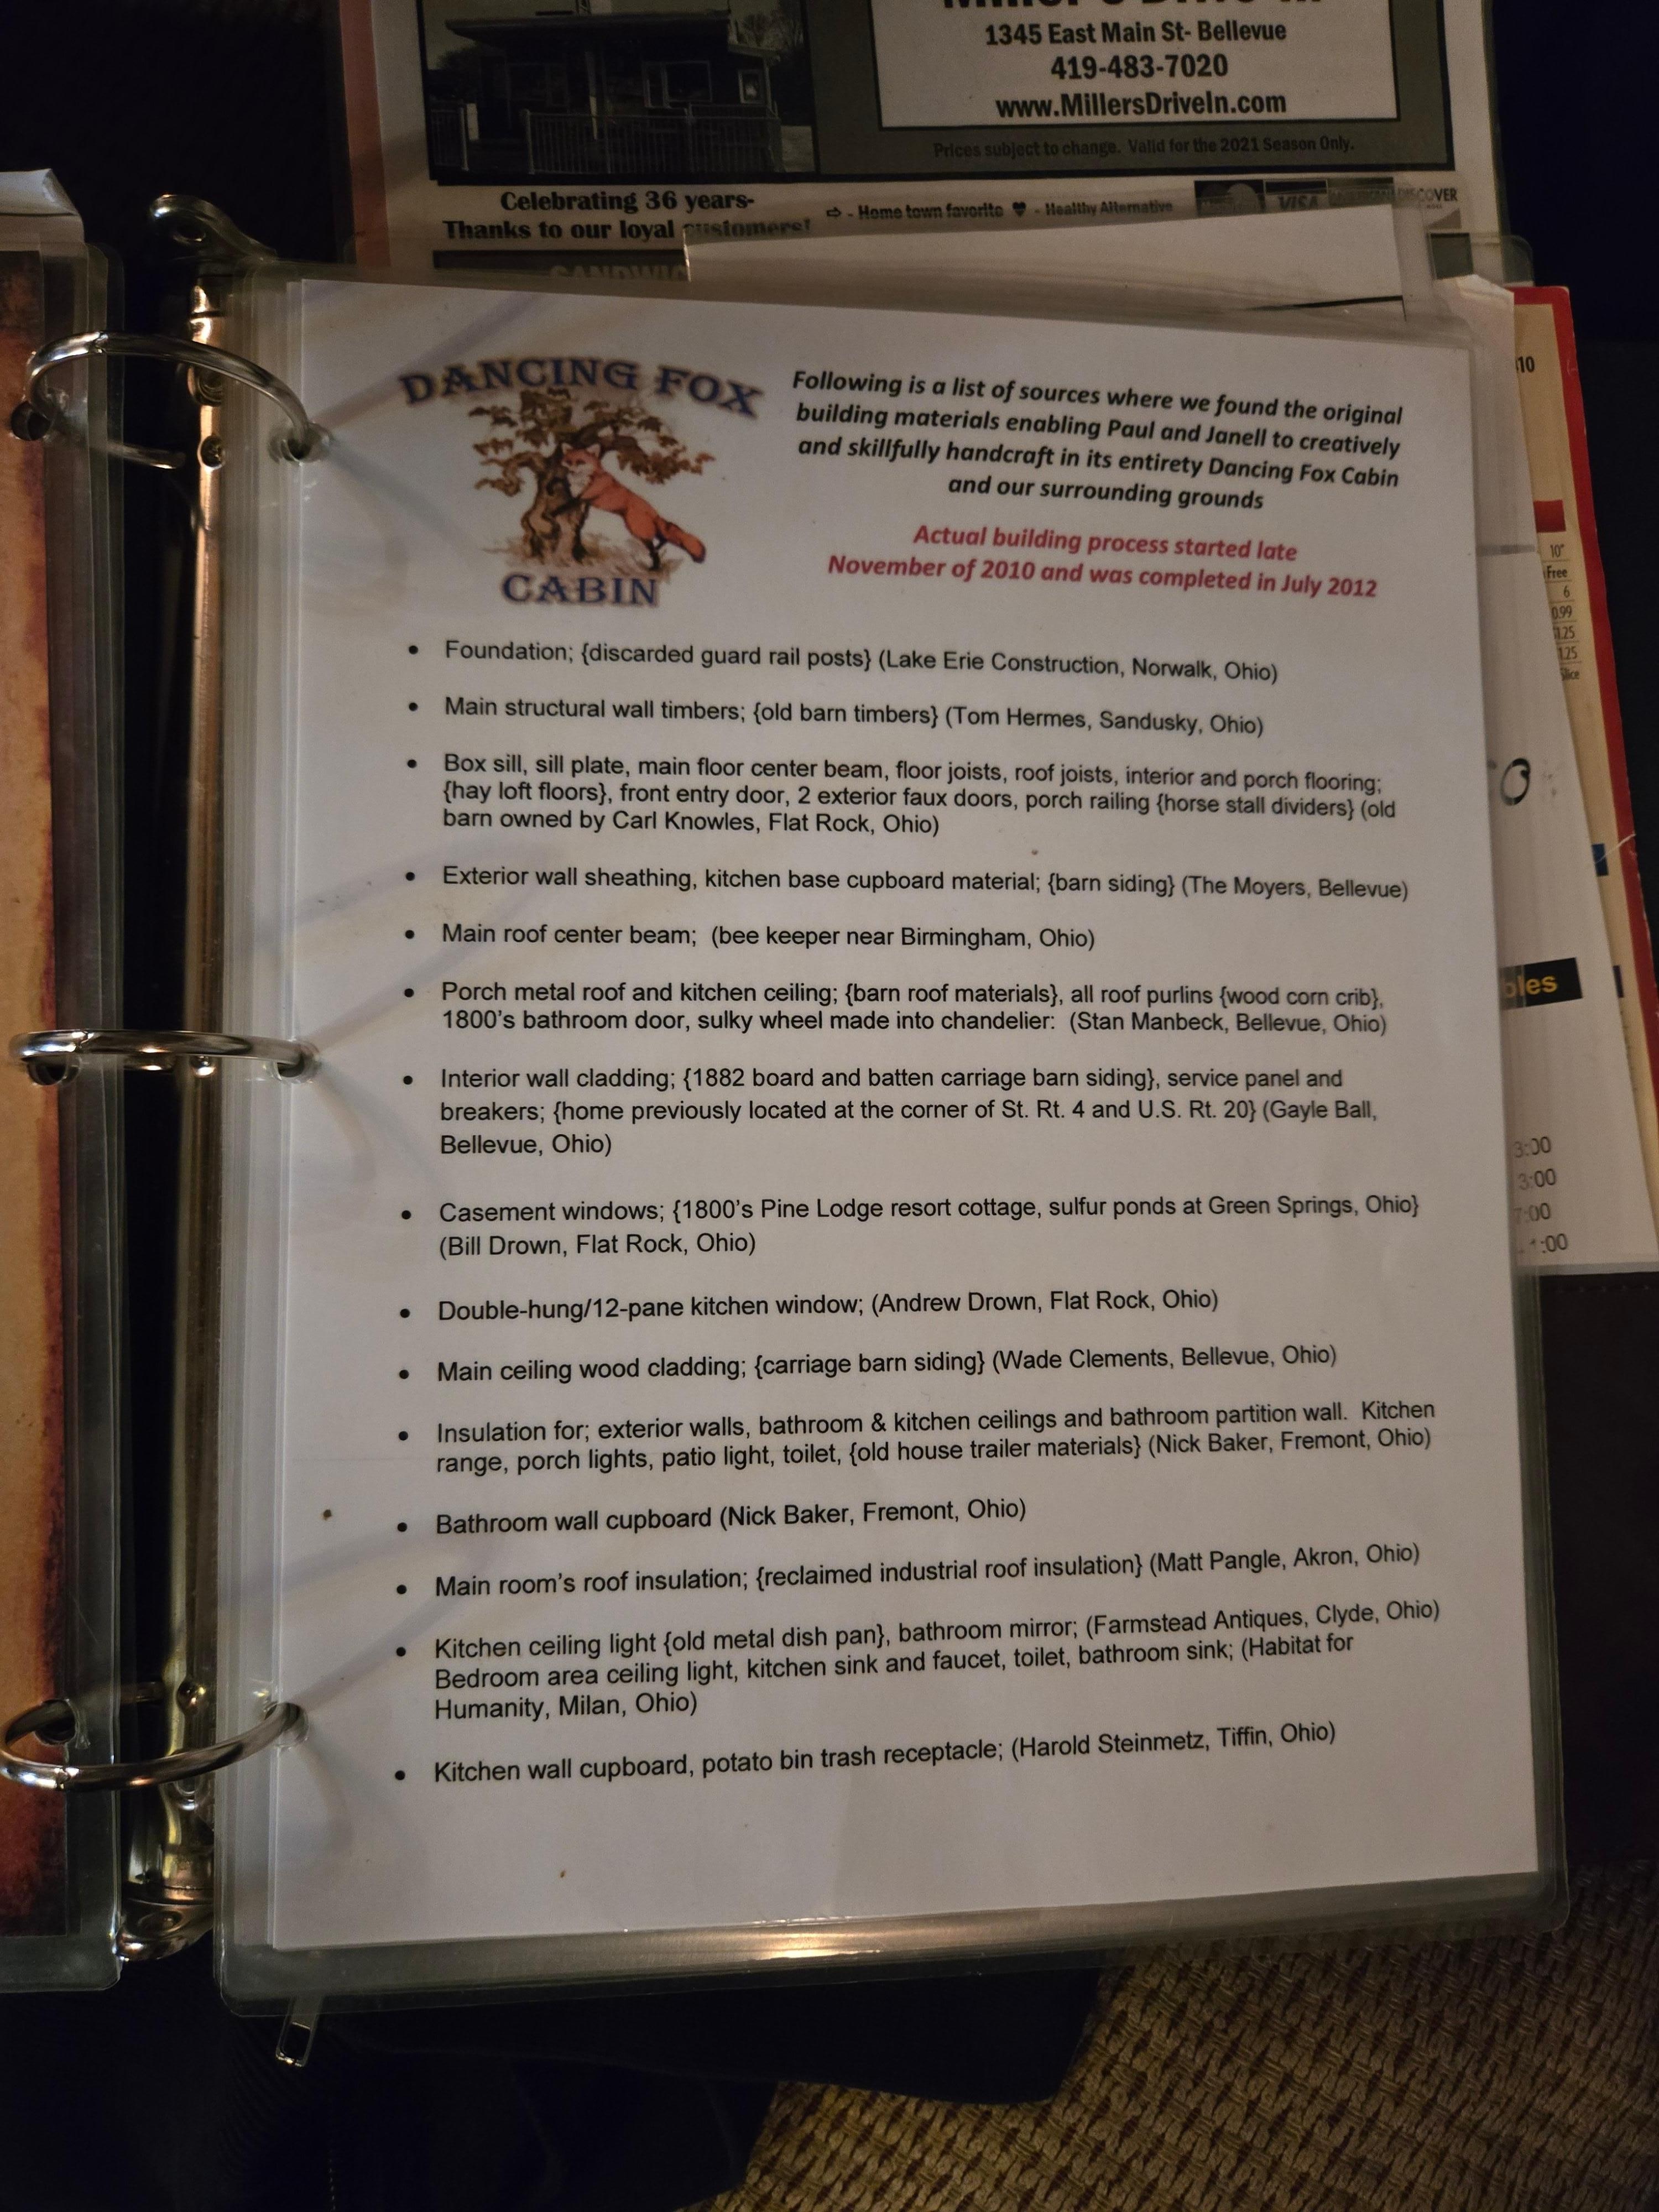 1345 East Main St- Bellevue
419-483-7020
www.MillersDriveIn.com
Prices subject to change. Valid for the 2021 Season Only.
Celebrating 36 years-
Thanks to our loyal customers!
⇨ - Home town favorite ♥ - Healthy Alternative
VISA
DISCOVER
DANCING FOX
CABIN
Following is a list of sources where we found the original
building materials enabling Paul and Janell to creatively
and skillfully handcraft in its entirety Dancing Fox Cabin
and our surrounding grounds
Actual building process started late
November of 2010 and was completed in July 2012
• Foundation; {discarded guard rail posts} (Lake Erie Construction, Norwalk, Ohio)
• Main structural wall timbers; {old barn timbers} (Tom Hermes, Sandusky, Ohio)
• Box sill, sill plate, main floor center beam, floor joists, roof joists, interior and porch flooring;
{hay loft floors}, front entry door, 2 exterior faux doors, porch railing {horse stall dividers} (old
barn owned by Carl Knowles, Flat Rock, Ohio)
• Exterior wall sheathing, kitchen base cupboard material; {barn siding} (The Moyers, Bellevue)
• Main roof center beam;  (bee keeper near Birmingham, Ohio)
• Porch metal roof and kitchen ceiling; {barn roof materials}, all roof purlins {wood corn crib},
1800's bathroom door, sulky wheel made into chandelier:  (Stan Manbeck, Bellevue, Ohio)
• Interior wall cladding; {1882 board and batten carriage barn siding}, service panel and
breakers; {home previously located at the corner of St. Rt. 4 and U.S. Rt. 20} (Gayle Ball,
Bellevue, Ohio)
• Casement windows; {1800's Pine Lodge resort cottage, sulfur ponds at Green Springs, Ohio}
(Bill Drown, Flat Rock, Ohio)
• Double-hung/12-pane kitchen window; (Andrew Drown, Flat Rock, Ohio)
• Main ceiling wood cladding; {carriage barn siding} (Wade Clements, Bellevue, Ohio)
• Insulation for; exterior walls, bathroom & kitchen ceilings and bathroom partition wall.  Kitchen
range, porch lights, patio light, toilet, {old house trailer materials} (Nick Baker, Fremont, Ohio)
• Bathroom wall cupboard (Nick Baker, Fremont, Ohio)
• Main room's roof insulation; {reclaimed industrial roof insulation} (Matt Pangle, Akron, Ohio)
• Kitchen ceiling light {old metal dish pan}, bathroom mirror; (Farmstead Antiques, Clyde, Ohio)
Bedroom area ceiling light, kitchen sink and faucet, toilet, bathroom sink; (Habitat for
Humanity, Milan, Ohio)
• Kitchen wall cupboard, potato bin trash receptacle; (Harold Steinmetz, Tiffin, Ohio)
10"
Free
6
0.99
1.25
1.25
3:00
3:00
7:00
1:00